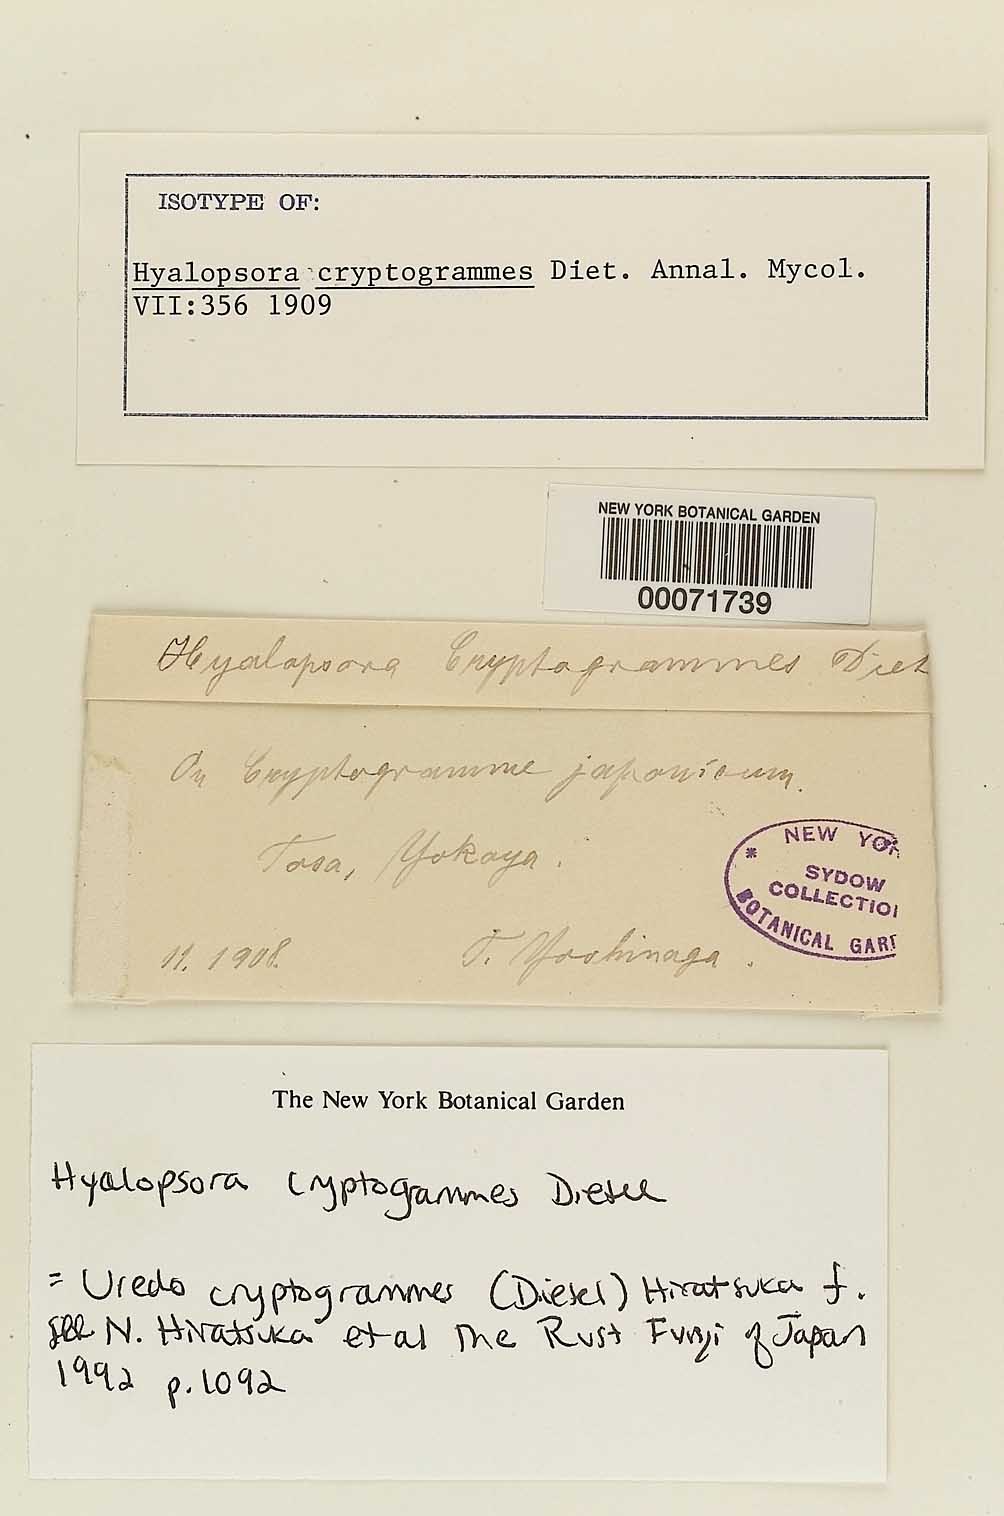 ISOTYPE OF:
Hyalopsora cryptogrammes Diet. Annal. Mycol.
VII:356 1909
NEW YORK BOTANICAL GARDEN
00071739
Hyalopsora Cryptogrammes Diet
On Cryptogramme japonicum.
Tosa, Yokoya.
11. 1908.
T. Yoshinaga.
* NEW YOR
SYDOW
COLLECTION
BOTANICAL GARD
The New York Botanical Garden
Hyalopsora cryptogrammes Dietel
= Uredo cryptogrammes (Dietel) Hiratsuka f.
see N. Hiratsuka et al The Rust Fungi of Japan
1992 p.1092